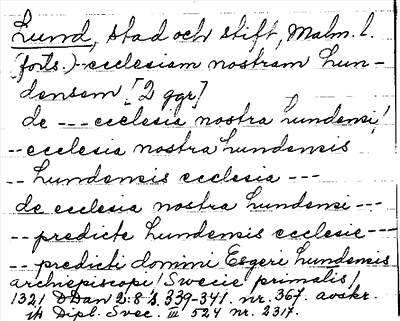 Lund, stad och stift, Malm. l.
(forts.) - ecclesiam nostram Lun-
densem [2 ggr]
de --- ecclesia nostra Lundensi/
-- ecclesia nostra Lundensis
-- Lundensis ecclesia ---
de ecclesia nostra Lundensi ---
-- predicte Lundensis ecclesie ---
-- predicti domini Esgeri Lundensis
archiepiscopi/Swecie primatis/
1321 DDan 2:8 s 339-341. nr. 367. avskr.
jfr Dipl. Svec. III 524 nr. 2317.